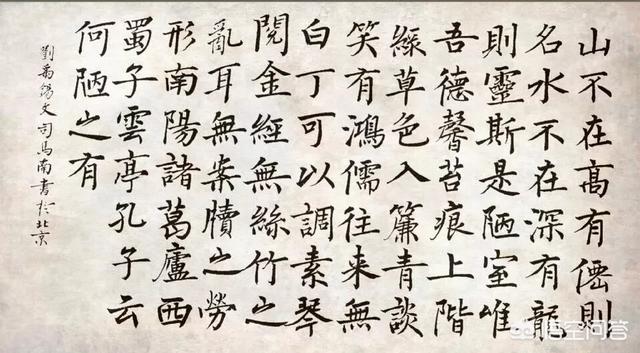 山不在高有僊則
名水不在深有龍
則靈斯是陋室唯
吾德馨苔痕上階
綠草色入簾青談
笑有鴻儒往來無
白丁可以調素琴
閱金經無絲竹之
亂耳無案牘之勞
形南陽諸葛廬西
蜀子雲亭孔子云
何陋之有
劉禹錫文司馬南書於北京
悟空问答